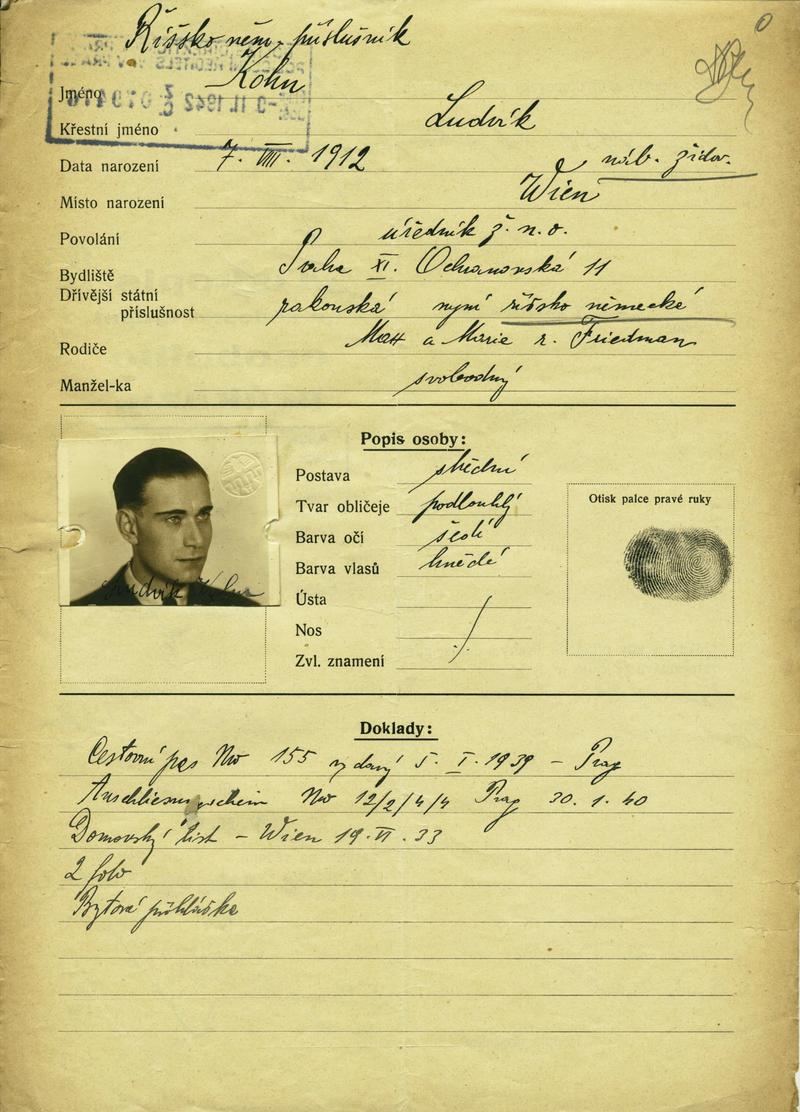 Říšsko něm. příslušník
Jméno Kohn
Křestní jméno Ludvík
Data narození 7. VIII. 1912 náb. židov.
Místo narození Wien
Povolání úředník ž. n. o.
Bydliště Praha XI. Ochranovská 11
Dřívější státní
příslušnost rakouská nyní říšsko německé
Rodiče Max a Marie r. Friedman
Manžel-ka svobodný
Popis osoby:
Postava střední
Tvar obličeje podlouhlý
Barva očí šedé
Barva vlasů hnědé
Ústa
Nos
Zvl. znamení
Otisk palce pravé ruky
Ludvík Kohn
Doklady:
Cestovní pas No 155 vydaný 5. I. 1939 – Prag
No 12/2/4/4 Prag 30. 1. 40
Domovský list – Wien 19. VI. 33
2 foto
Bytová přihláška